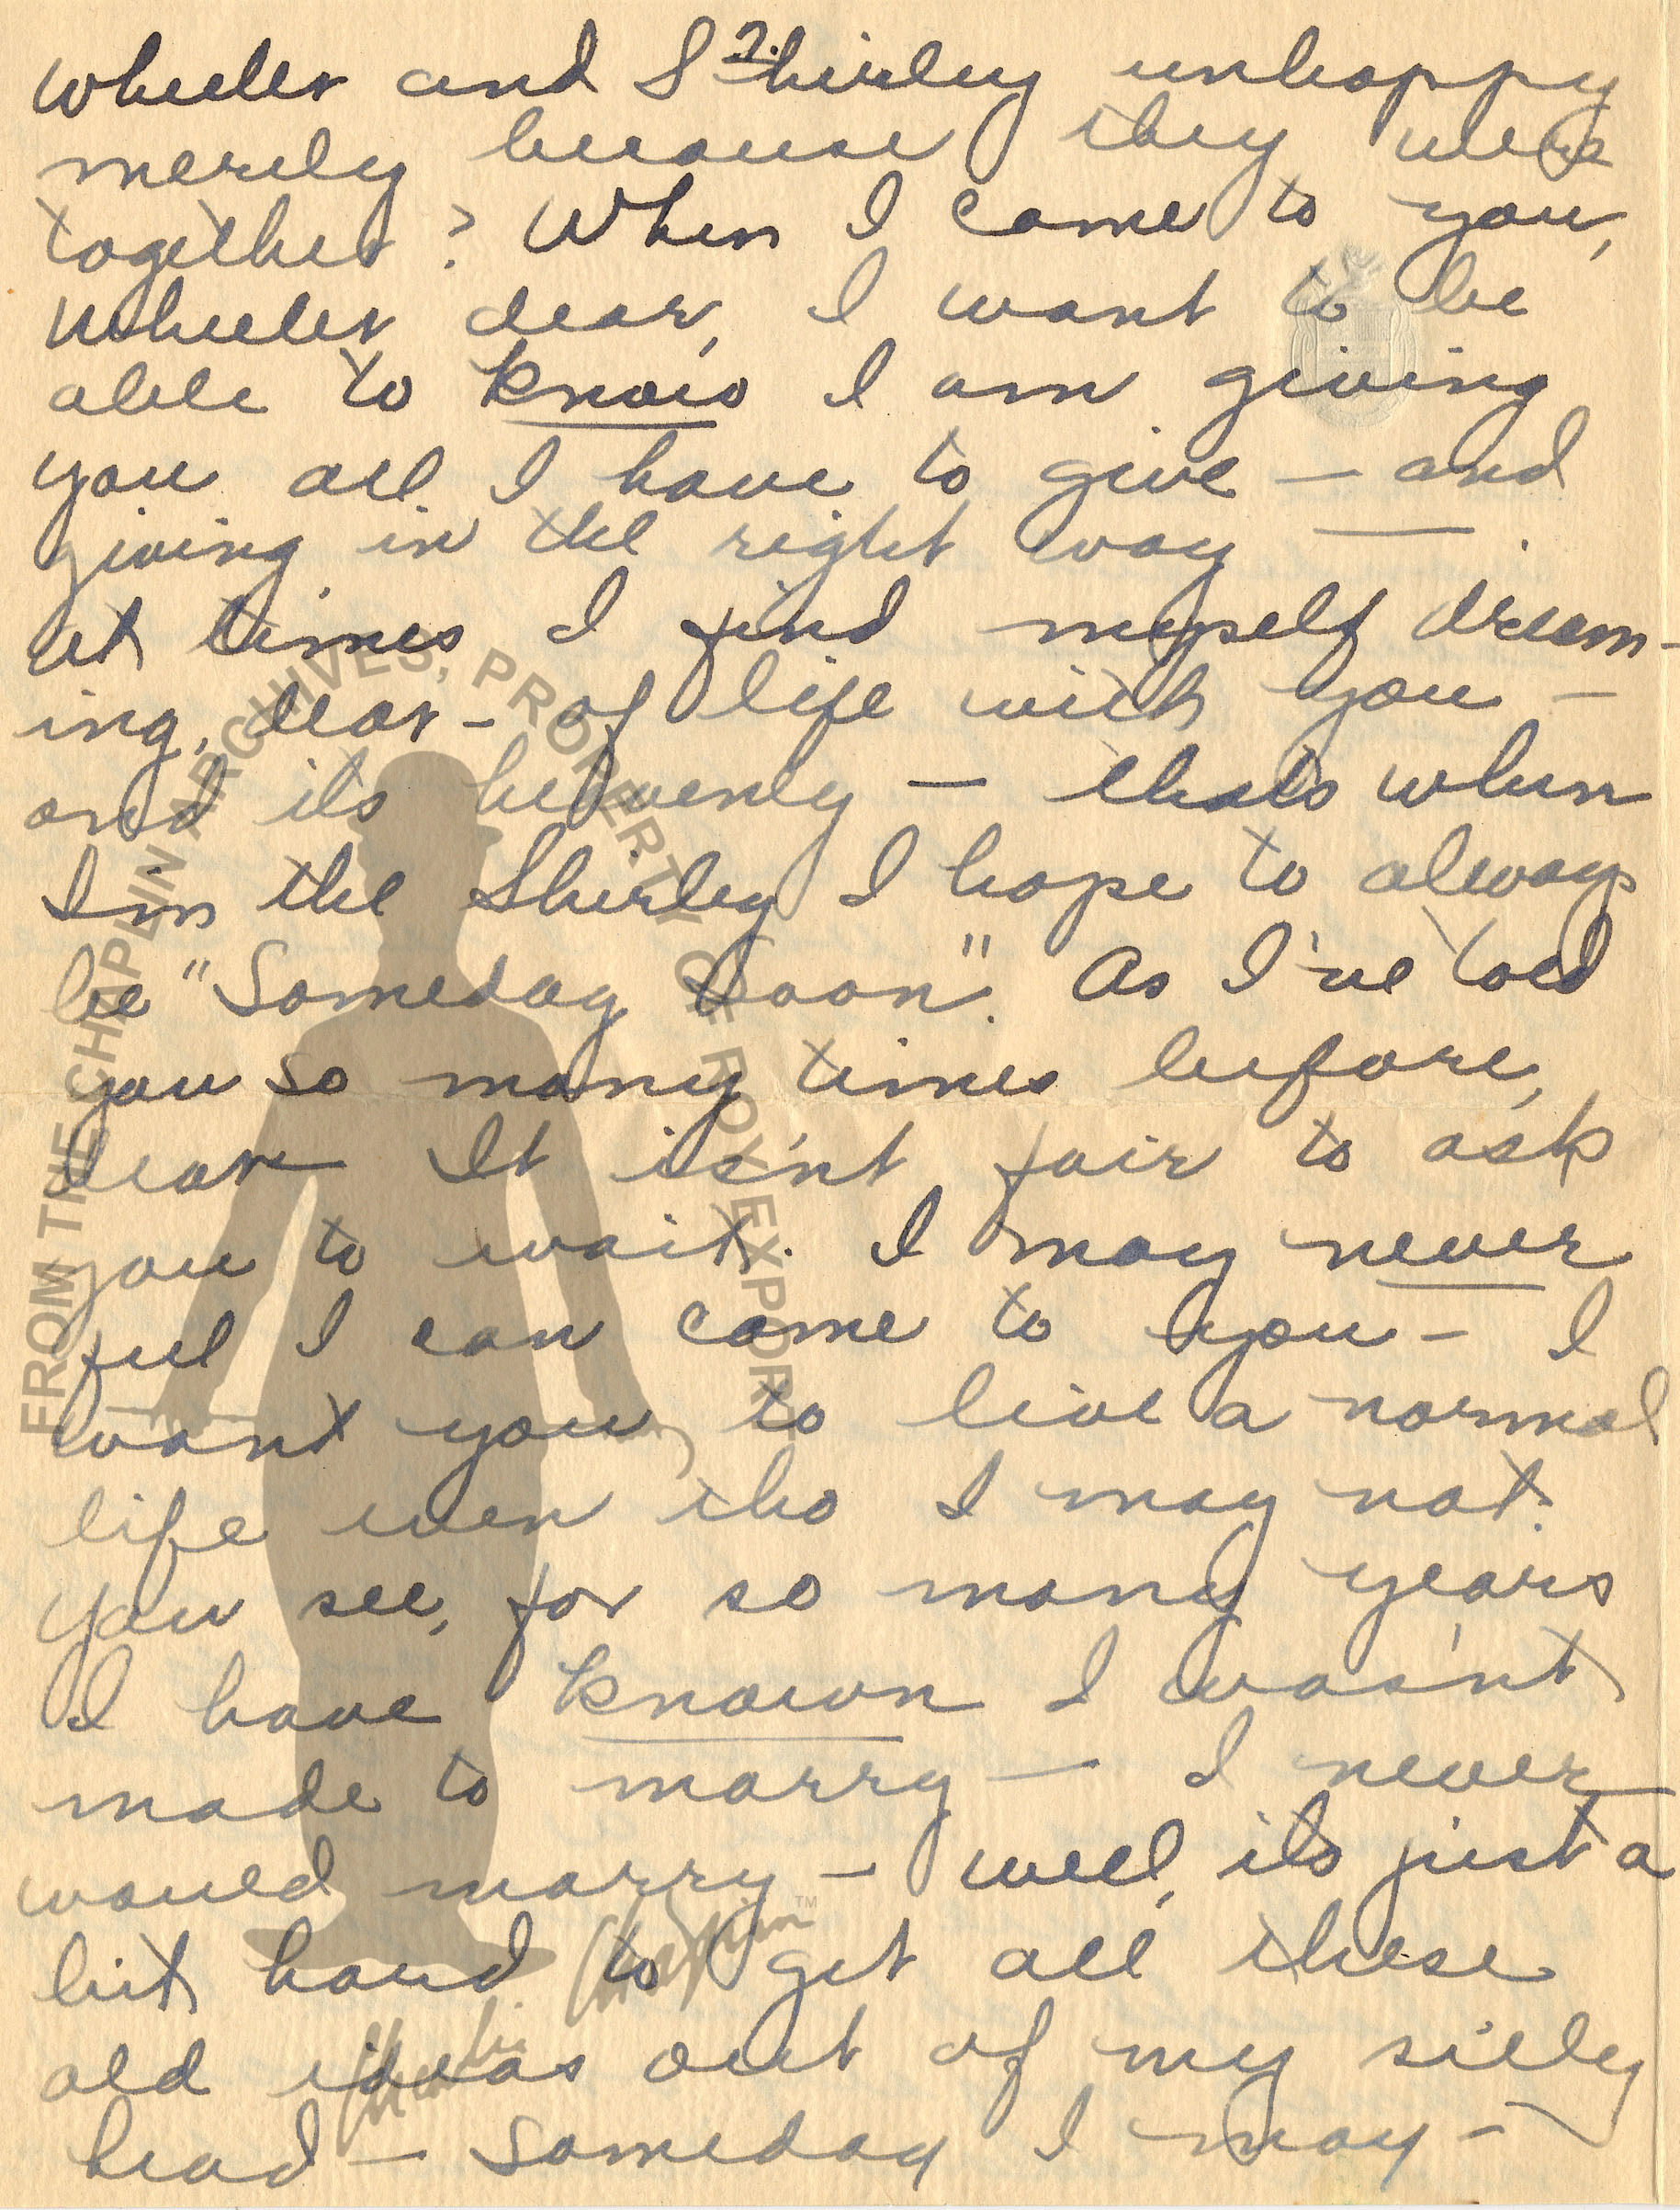 2.
Wheeler and Shirley unhappy
merely because they were
together? When I come to you,
Wheeler dear, I want to be
able to know I am giving
you all I have to give — and
giving in the right way — .
At times I find myself dream-
ing, dear - of life with you -
and its heavenly — thats when
I'm the Shirley I hope to always
be "Someday Soon". As I've told
you so many times before,
dear It is'nt fair to ask
you to wait. I may never
feel I can come to you - I
want you to live a normal
life even tho I may not.
You see, for so many years
I have known I was'nt
made to marry — I never
would marry - well, its just a
bit hard to get all these
old ideas out of my silly
head - Someday I may -
FROM THE CHAPLIN ARCHIVES, PROPERTY OF ROY EXPORT
Charlie Chaplin™